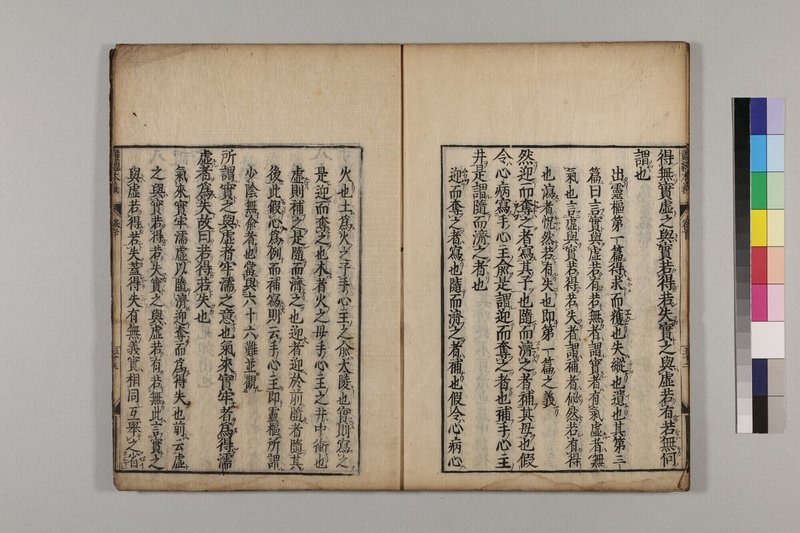 得無實虛之與實若得若失實之與虛若有若無何
謂也
出靈樞第一篇得求而獲也失縱也遺也其第三
篇曰言實與虛若有若無者謂實者有氣虛者無
氣也言虛與實若得若失者謂補者佖然若有得
也瀉者怳然若有失也即第一篇之義
然迎而奪之者寫其子也隨而濟之者補其母也假
令心病寫手心主俞是謂迎而奪之者也補手心主
井是謂隨而濟之者也
迎而奪之者寫也隨而濟之者補也假令心病心
火也土爲火之子手心主之俞大陵也實則寫之
是迎而奪之也木者火之母手心主之井中衝也
虛則補之是隨而濟之也迎者迎於前隨者隨其
後此假心爲例而補寫則云手心主即靈樞所謂
少陰無俞者也當與六十六難並觀
所謂實之與虛者牢濡之意也氣來實牢者爲得濡
虛者爲失故曰若得若失也
氣來實牢濡虛以隨濟迎奪而爲得失也前云虛
之與實若得若失實之與虛若有若無此言實之
與虛若得若失蓋得失有無義實相同互舉之省